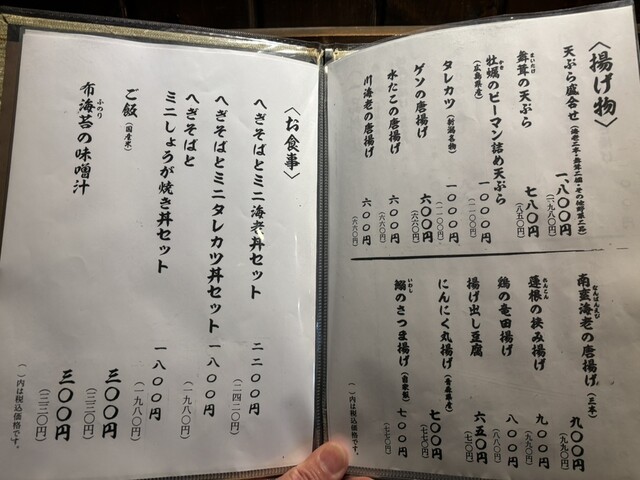 〈揚げ物〉
天ぷら盛合せ(海老二本・舞茸二個・その他野菜三点) 一、八〇〇円
(一、九八〇円)
まいたけ
舞茸の天ぷら 七八〇円
(八五〇円)
かき
牡蠣のピーマン詰め天ぷら 一〇〇〇円
(広島県産) (一一〇〇円)
タレカツ(新潟名物) 一〇〇〇円
(一一〇〇円)
ゲソの唐揚げ 六〇〇円
(六六〇円)
水たこの唐揚げ 六〇〇円
(六六〇円)
川海老の唐揚げ 六〇〇円
(六六〇円)
なんばんえび
南蛮海老の唐揚げ(五本) 九〇〇円
(九九〇円)
れんこん
蓮根の挟み揚げ 九〇〇円
(九九〇円)
鶏の竜田揚げ 八〇〇円
(八八〇円)
揚げ出し豆腐 六五〇円
にんにく丸揚げ(青森県産) 七〇〇円
(七七〇円)
いわし
鰯のさつま揚げ(自家製) 七〇〇円
(七七〇円)
( )内は税込価格です。
〈お食事〉
へぎそばとミニ海老丼セット 二二〇〇円
(二四二〇円)
へぎそばとミニタレカツ丼セット 一八〇〇円
(一九八〇円)
へぎそばと
ミニしょうが焼き丼セット 一八〇〇円
(一九八〇円)
ご飯(国産米) 三〇〇円
(三三〇円)
ふのり
布海苔の味噌汁 三〇〇円
(三三〇円)
( )内は税込価格です。